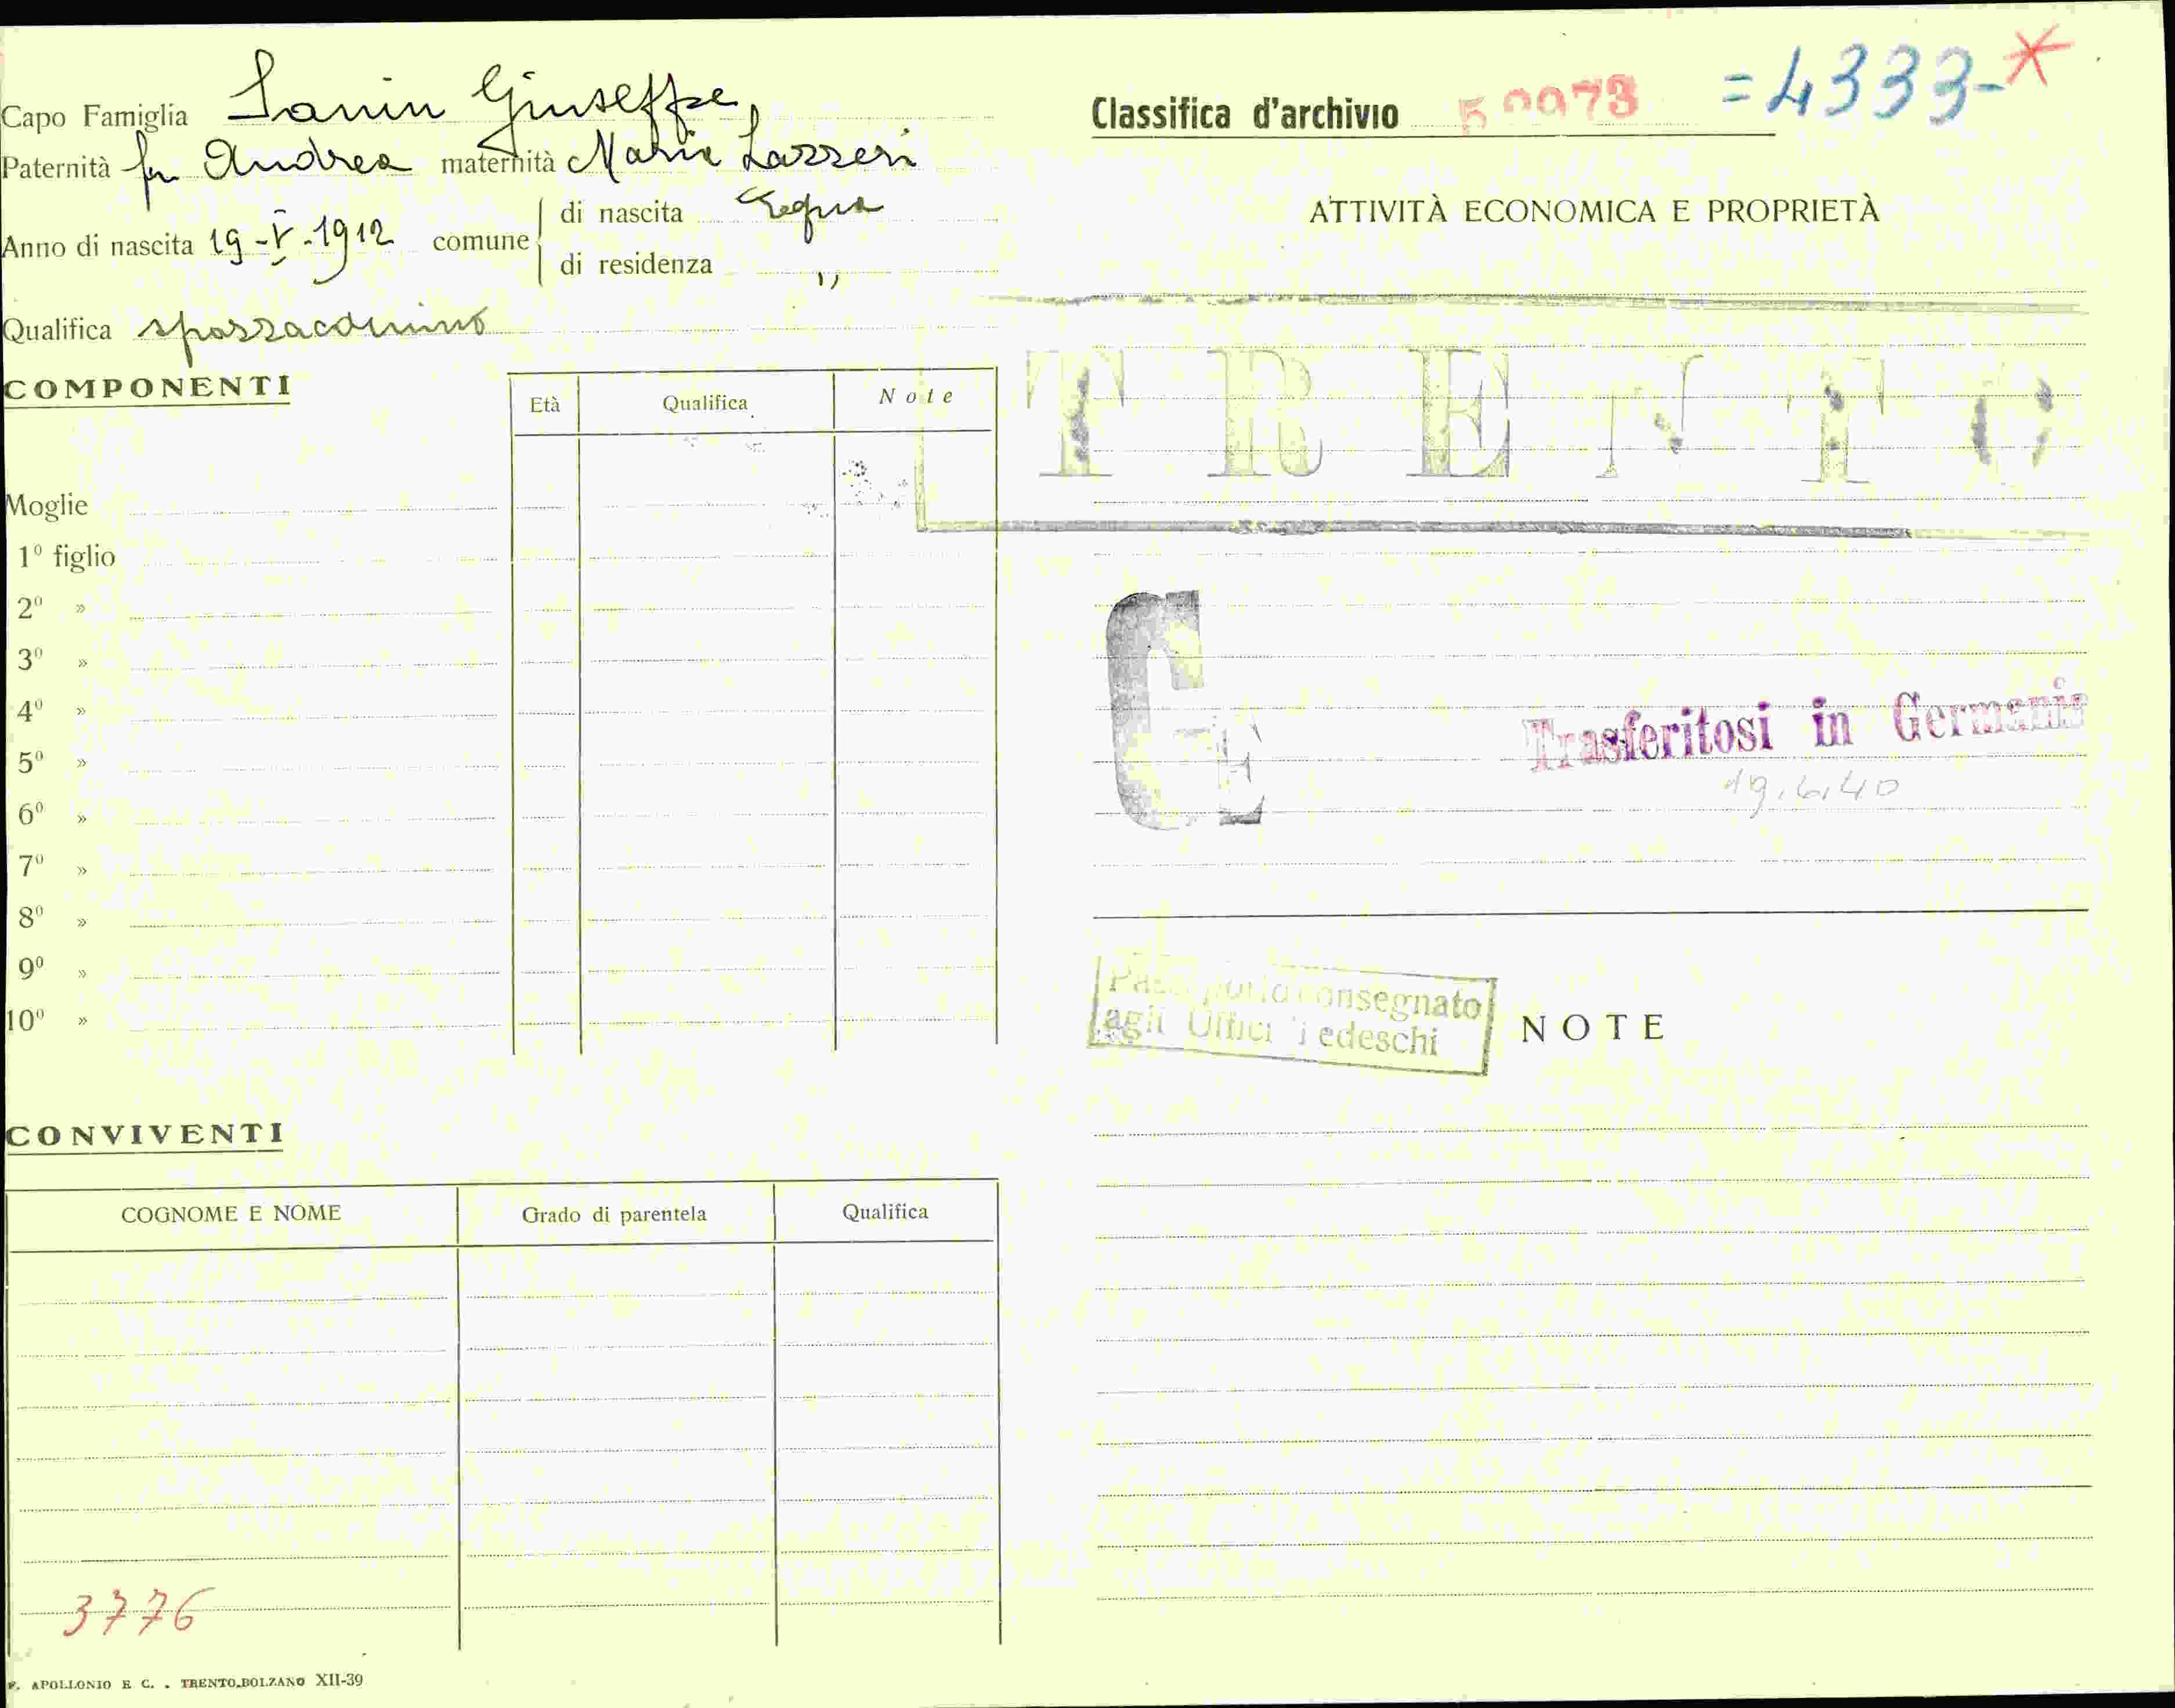 Capo Famiglia Sanin Giuseppe
Paternità fu Andrea maternità Maria Lazzeri
Anno di nascita 19-V-1912 comune
di nascita
di residenza "
Qualifica spazzacamino
COMPONENTI
Età Qualifica Note
Moglie
1º figlio
2º »
3º »
4º »
5º »
6º »
7º »
8º »
9º »
10º »
CONVIVENTI
COGNOME E NOME Grado di parentela Qualifica
3776
F. APOLLONIO E C. . TRENTO-BOLZANO XII-39
Classifica d'archivio =4333-*
ATTIVITÀ ECONOMICA E PROPRIETÀ
TRENTO
Trasferitosi in Germania
19.6.40
Passaporto consegnato
agli Uffici Tedeschi
NOTE